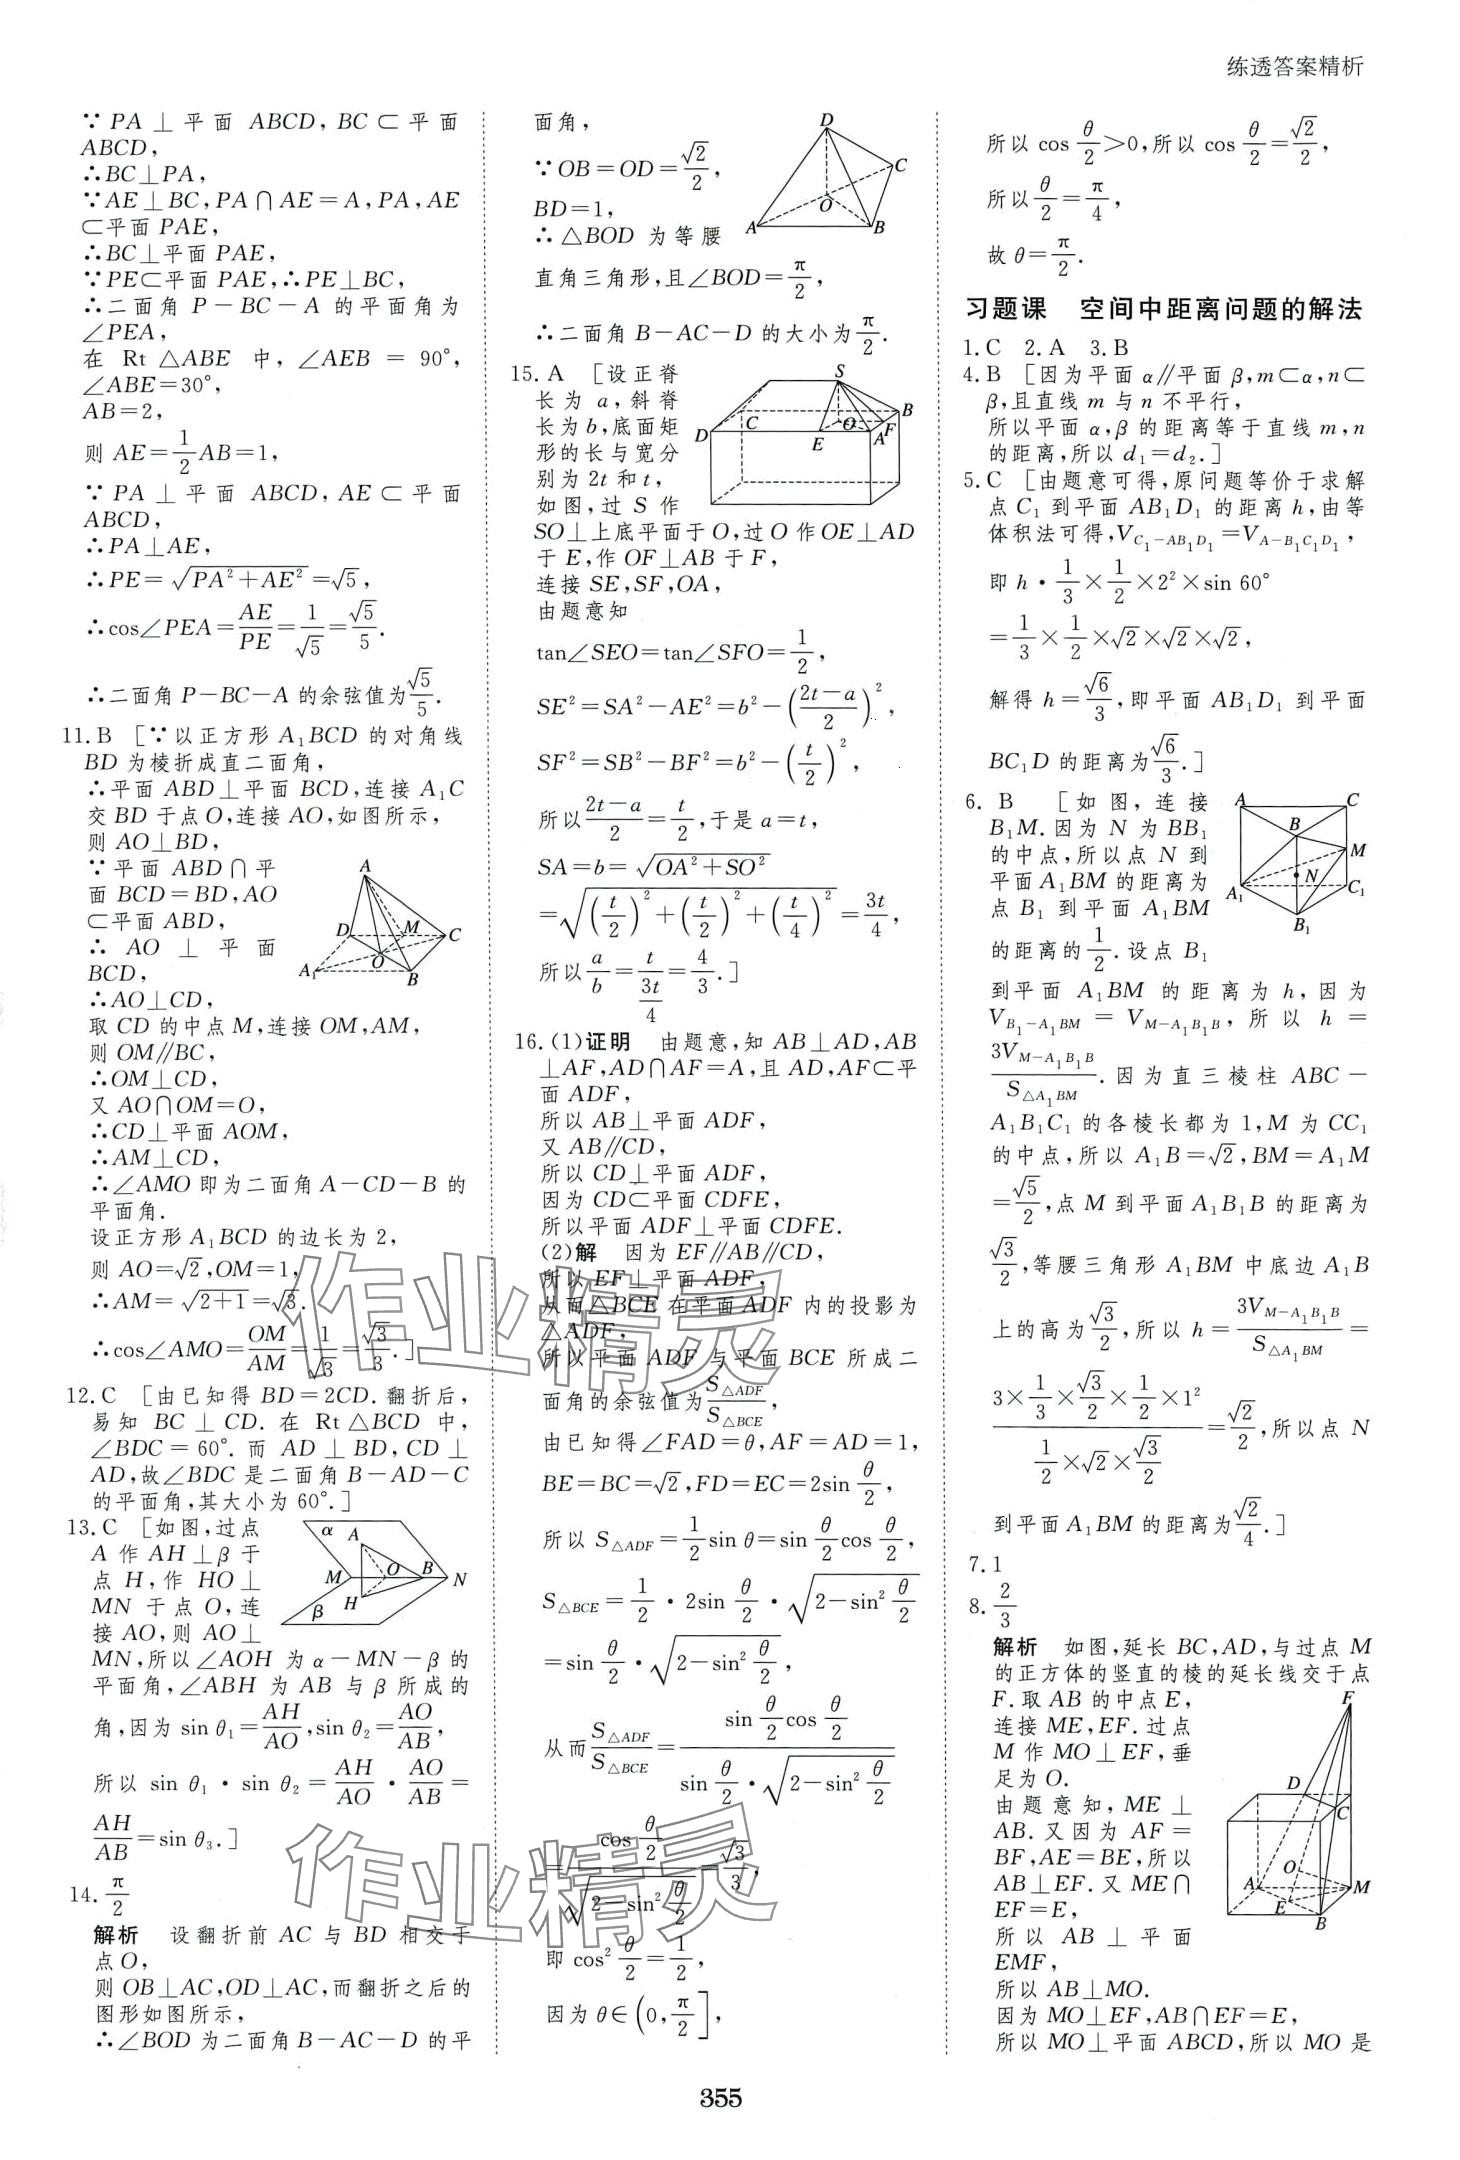 练透答案精析
∵PA⊥平面 ABCD,BC⊂平面
ABCD,
∴BC⊥PA,
∵AE⊥BC,PA∩AE=A,PA,AE
⊂平面PAE,
∴BC⊥平面PAE,
∵PE⊂平面PAE,∴PE⊥BC,
∴二面角 P-BC-A 的平面角为
∠PEA,
在 Rt△ABE 中,∠AEB = 90°,
∠ABE=30°,
AB=2,
则 AE=1/2AB=1,
∵PA⊥平面 ABCD,AE⊂平面
ABCD,
∴PA⊥AE,
∴PE=√(PA²+AE²)=√5,
∴cos∠PEA=AE/PE=1/√5=√5/5.
∴二面角P-BC-A的余弦值为√5/5.
11.B [∵以正方形A₁BCD的对角线
BD为棱折成直二面角,
∴平面ABD⊥平面BCD,连接A₁C
交BD于点O,连接AO,如图所示,
则AO⊥BD,
∵平面ABD∩平
面BCD=BD,AO
⊂平面ABD,
∴ AO ⊥ 平面
BCD,
∴AO⊥CD,
取CD的中点M,连接OM,AM,
则OM∥BC,
∴OM⊥CD,
又AO∩OM=O,
∴CD⊥平面AOM,
∴AM⊥CD,
∴∠AMO即为二面角A-CD-B的
平面角.
设正方形A₁BCD的边长为2,
则AO=√2,OM=1,
∴AM=√(2+1)=√3.
∴cos∠AMO=OM/AM=1/√3=√3/3.]
A
D
M
C
O
A₁
B
12.C [由已知得BD=2CD.翻折后,
易知 BC⊥CD.在 Rt△BCD 中,
∠BDC=60°.而 AD⊥BD,CD⊥
AD,故∠BDC是二面角B-AD-C
的平面角,其大小为60°.]
13.C [如图,过点
A作AH⊥β于
点H,作 HO⊥
MN于点O,连
接AO,则AO⊥
MN,所以∠AOH 为α-MN-β的
平面角,∠ABH 为AB与β所成的
角,因为 sin θ₁=AH/AO,sin θ₂=AO/AB,
所以 sin θ₁·sin θ₂=AH/AO·AO/AB=
AH/AB=sin θ₃.]
α
A
O
B
M
N
H
β
14.π/2
解析 设翻折前AC与BD相交于
点O,
则OB⊥AC,OD⊥AC,而翻折之后的
图形如图所示,
∴∠BOD为二面角B-AC-D的平
面角,
∵OB=OD=√2/2,
BD=1,
∴△BOD 为等腰
直角三角形,且∠BOD=π/2,
∴二面角B-AC-D的大小为π/2.
D
C
O
A
B
15.A [设正脊
长为a,斜脊
长为b,底面矩
形的长与宽分
别为2t和t,
如图,过S作
SO⊥上底平面于O,过O作OE⊥AD
于E,作OF⊥AB于F,
连接SE,SF,OA,
由题意知
tan∠SEO=tan∠SFO=1/2,
SE²=SA²-AE²=b²-((2t-a)/2)²,
SF²=SB²-BF²=b²-(t/2)²,
所以(2t-a)/2=t/2,于是a=t,
SA=b=√(OA²+SO²)
=√((t/2)²+(t/2)²+(t/4)²)=3t/4,
所以a/b=t/(3t/4)=4/3.]
S
B
C
O
F
D
E
A
16.(1)证明 由题意,知AB⊥AD,AB
⊥AF,AD∩AF=A,且AD,AF⊂平
面ADF,
所以AB⊥平面ADF,
又AB∥CD,
所以CD⊥平面ADF,
因为CD⊂平面CDFE,
所以平面ADF⊥平面CDFE.
(2)解 因为EF∥AB∥CD,
所以EF⊥平面ADF,
从而△BCE在平面ADF内的投影为
△ADF,
所以平面ADF与平面BCE所成二
面角的余弦值为S△ADF/S△BCE,
由已知得∠FAD=θ,AF=AD=1,
BE=BC=√2,FD=EC=2sin θ/2,
所以S△ADF=1/2 sin θ=sin θ/2 cos θ/2,
S△BCE=1/2·2sin θ/2·√(2-sin² θ/2)
=sin θ/2·√(2-sin² θ/2),
从而S△ADF/S△BCE=(sin θ/2 cos θ/2)/(sin θ/2·√(2-sin² θ/2))
=(cos θ/2)/√(2-sin² θ/2)=√3/3,
即cos² θ/2=1/2,
因为θ∈(0,π/2],
所以cos θ/2>0,所以cos θ/2=√2/2,
所以θ/2=π/4,
故θ=π/2.
习题课 空间中距离问题的解法
1.C 2.A 3.B
4.B [因为平面α∥平面β,m⊂α,n⊂
β,且直线m与n不平行,
所以平面α,β的距离等于直线m,n
的距离,所以d₁=d₂.]
5.C [由题意可得,原问题等价于求解
点C₁到平面AB₁D₁的距离h,由等
体积法可得,V_{C₁-AB₁D₁}=V_{A-B₁C₁D₁},
即h·1/3×1/2×2²×sin 60°
=1/3×1/2×√2×√2×√2,
解得h=√6/3,即平面AB₁D₁到平面
BC₁D的距离为√6/3.]
6.B [如图,连接
B₁M.因为N为BB₁
的中点,所以点N到
平面A₁BM的距离为
点B₁到平面A₁BM
的距离的1/2.设点B₁
到平面A₁BM的距离为h,因为
V_{B₁-A₁BM}=V_{M-A₁B₁B},所以h=
3V_{M-A₁B₁B}/S△A₁BM.因为直三棱柱ABC-
A₁B₁C₁的各棱长都为1,M为CC₁
的中点,所以A₁B=√2,BM=A₁M
=√5/2,点M到平面A₁B₁B的距离为
√3/2,等腰三角形A₁BM中底边A₁B
上的高为√3/2,所以h=3V_{M-A₁B₁B}/S△A₁BM=
(3×1/3×√3/2×1/2×1²)/(1/2×√2×√3/2)=√2/2,所以点N
到平面A₁BM的距离为√2/4.]
A
C
B
M
N
A₁
C₁
B₁
7.1
8.2/3
解析 如图,延长BC,AD,与过点M
的正方体的竖直的棱的延长线交于点
F.取AB的中点E,
连接ME,EF.过点
M作MO⊥EF,垂
足为O.
由题意知,ME⊥
AB.又因为AF=
BF,AE=BE,所以
AB⊥EF.又ME∩
EF=E,
所以 AB⊥平面
EMF,
所以AB⊥MO.
因为MO⊥EF,AB∩EF=E,
所以MO⊥平面ABCD,所以MO是
F
D
C
O
A
M
E
B
作业精灵
作业精灵
355